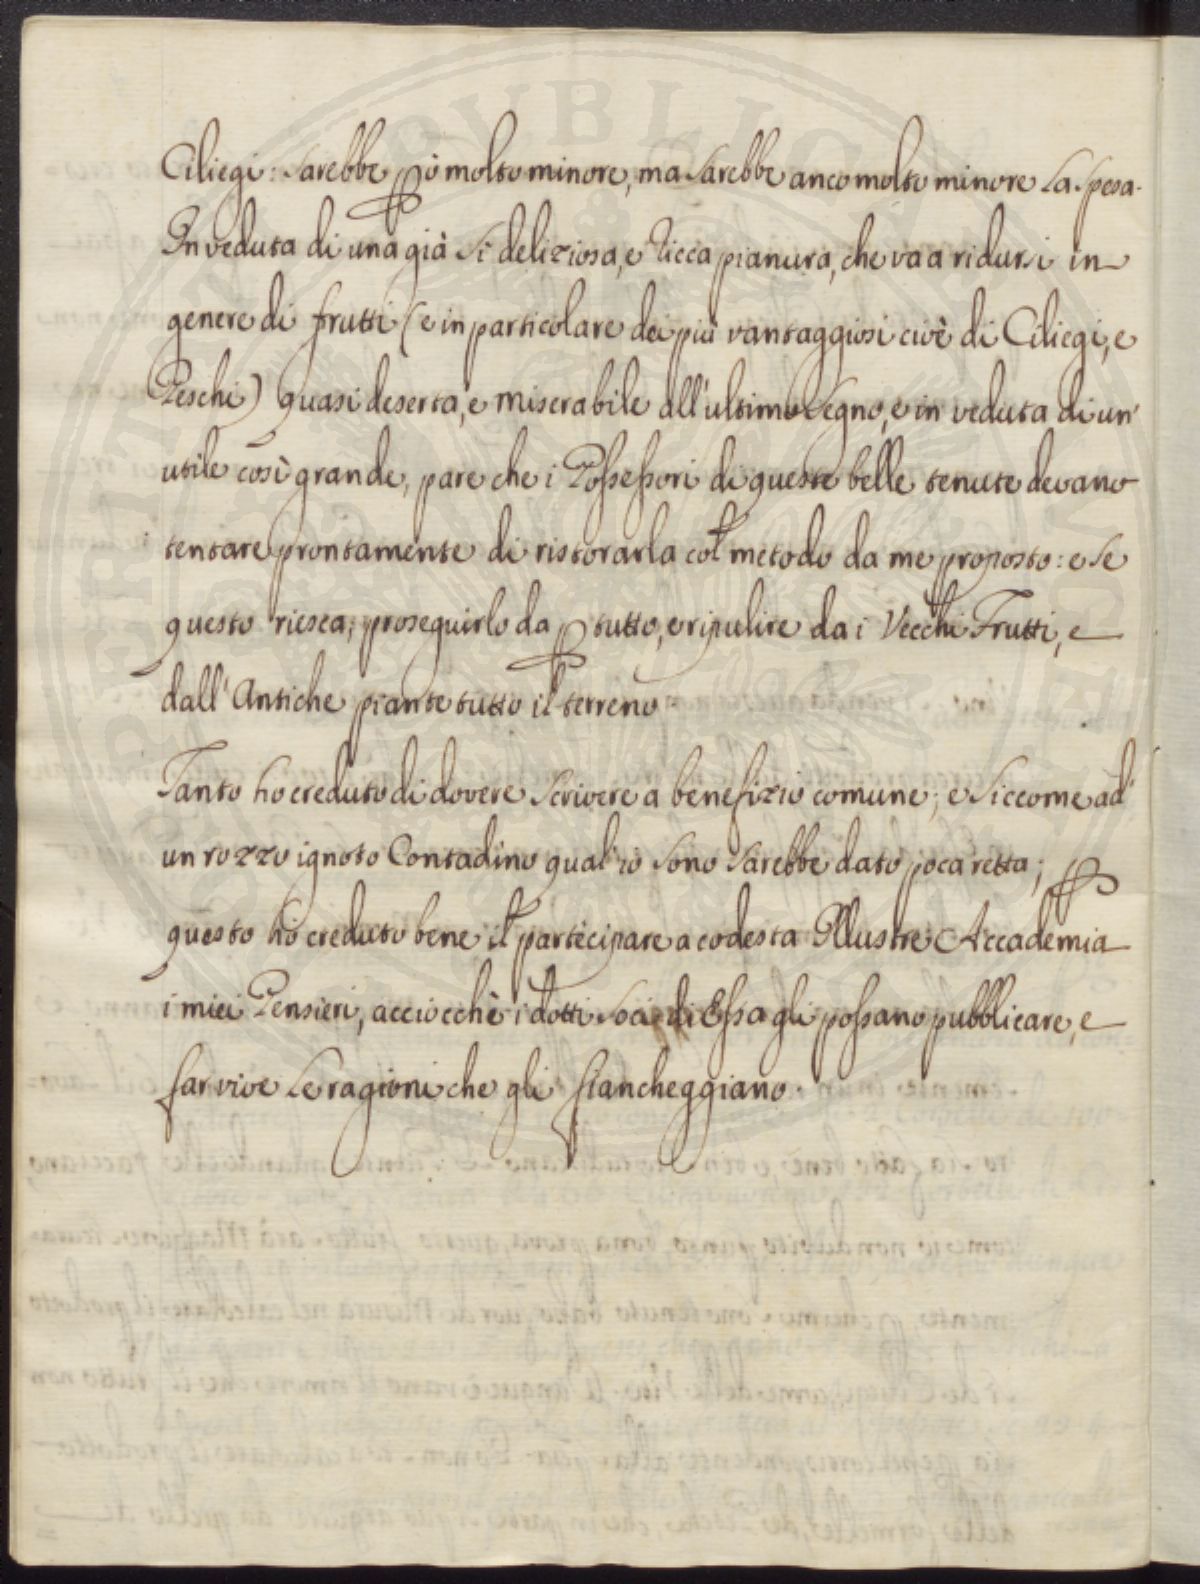 Ciliegi: sarebbe pò molto minore, ma sarebbe anco molto minore la spesa.
In veduta di una già sì deliziosa, e ricca pianura, che va a ridursi in
genere di frutti (e in particolare dei più vantaggiosi cioè di Ciliegi, e
Peschi) quasi deserta, e miserabile all'ultimo segno, e in veduta di un'
utile così grande, pare che i Possessori di queste belle tenute devano
tentare prontamente di ristorarla col metodo da me proposto: e se
questo riesca, proseguirlo da p tutto, e ripulire da i Vecchi Frutti, e
dall'Antiche piante tutto il terreno.
Tanto ho creduto di dovere scrivere a benefizio comune; e siccome ad
un rozzo ignoto Contadino qual'io sono sarebbe dato poca retta; p
questo hò creduto bene il partecipare a codesta Illustre Accademia
i miei Pensieri, acciocchè i dotti Soci di Essa gli possano pubblicare, e
far vive le ragioni che gli fiancheggiano.